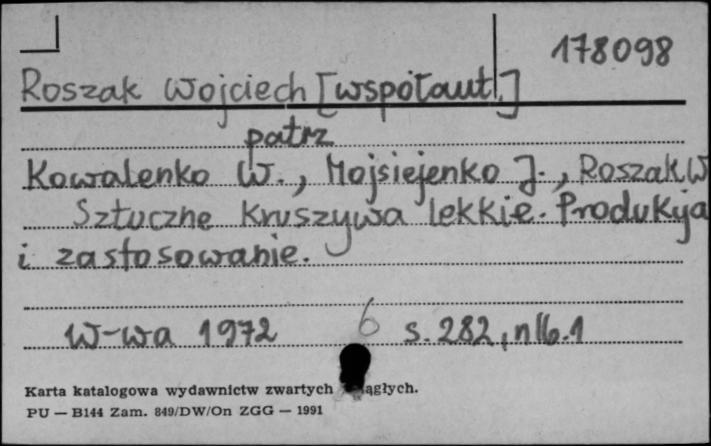 178098
Roszak Wojciech [współaut.]
patrz
Kowalenko W., Mojsiejenko J., Roszak W
Sztuczne kruszywa lekkie. Produkcja
i zastosowanie.
W-wa 1972 6 s. 282, nlb. 1
Karta katalogowa wydawnictw zwartych ągłych.
PU — B144 Zam. 849/DW/On ZGG — 1991